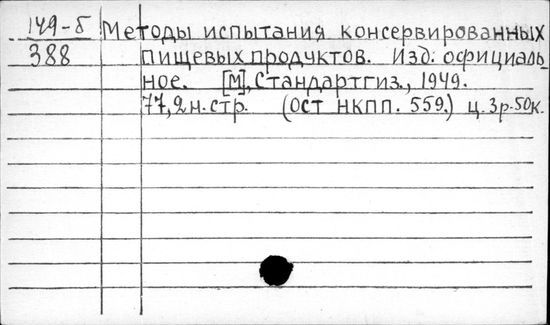 149-б Методы испытания консервированных
388 пищевых продуктов. Изд: официаль-
ное. [М], Стандартгиз., 1949.
77,2н.стр. (ОСТ НКПП. 559.) ц. 3р.50к.